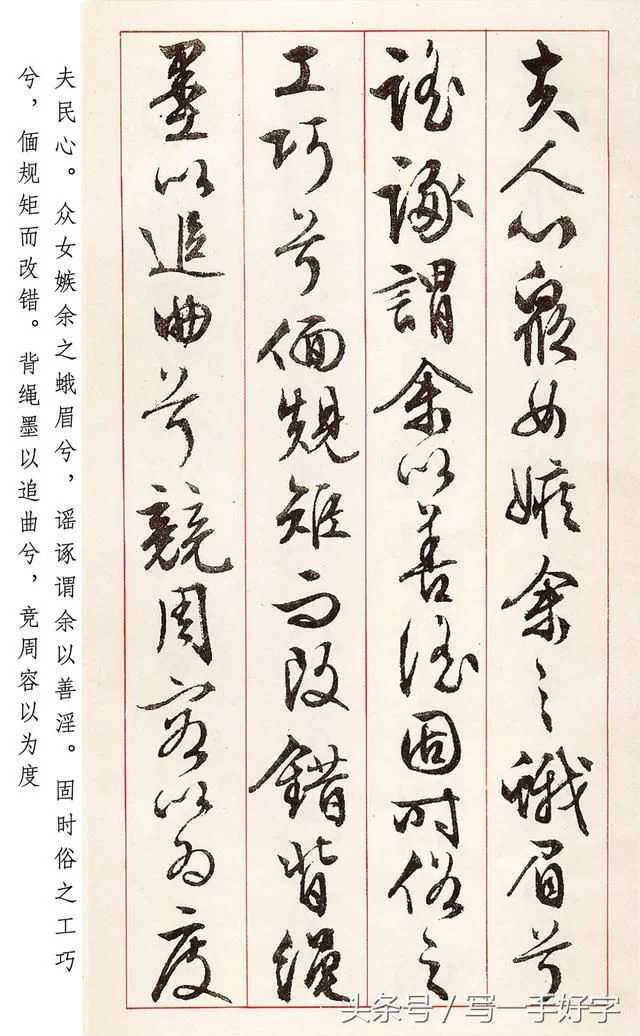 夫人心眾女嫉余之蛾眉兮
謠諑謂余以善淫固時俗之
工巧兮偭規矩而改錯背繩
墨以追曲兮競周容以為度
夫民心。众女嫉余之蛾眉兮，谣诼谓余以善淫。固时俗之工巧
兮，偭规矩而改错。背绳墨以追曲兮，竞周容以为度
头条号 / 写一手好字